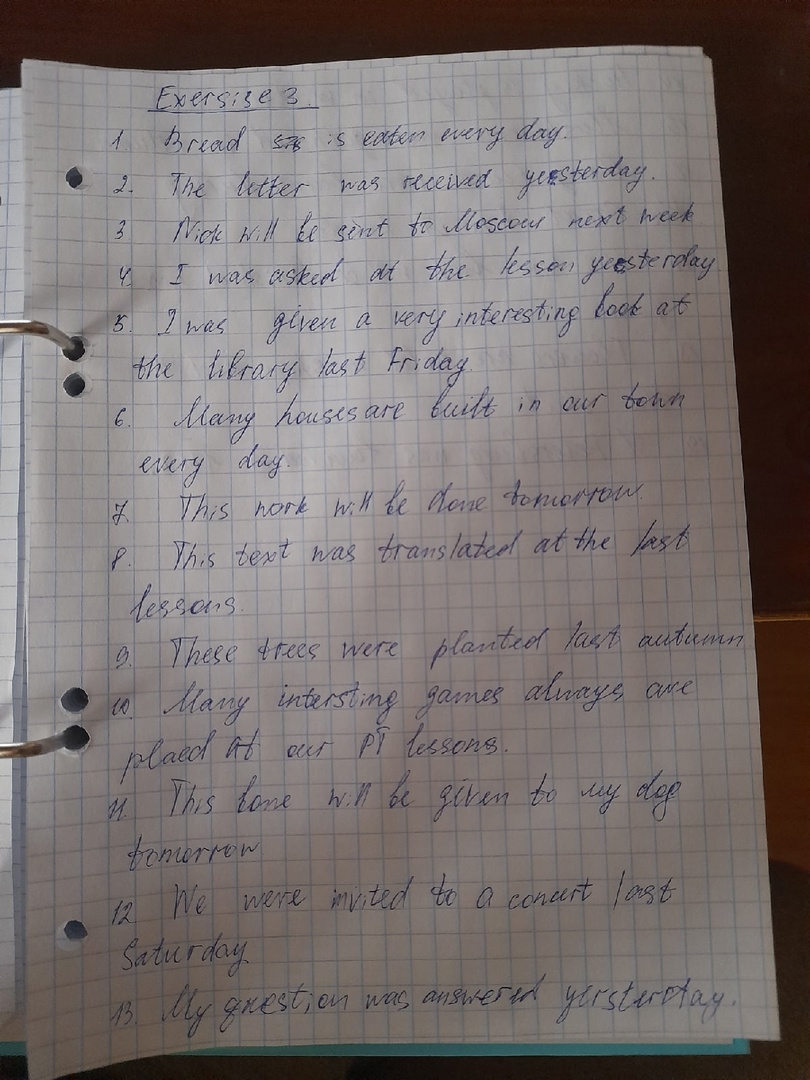 Exersise 3.
1 Bread is eaten every day.
2. The letter was received yesterday.
3 Nick will be sent to Moscow next week
4. I was asked at the lesson yesterday
5. I was given a very interesting book at
the library last Friday.
6. Many houses are built in our town
every day.
7. This work will be done tomorrow.
8. This text was translated at the last
lessons.
9. These trees were planted last autumn
10. Many intersting games always are
plaed at our PT lessons.
11. This bone will be given to my dog
tomorrow
12 We were invited to a concert last
Saturday.
13. My question was answered yersterday.